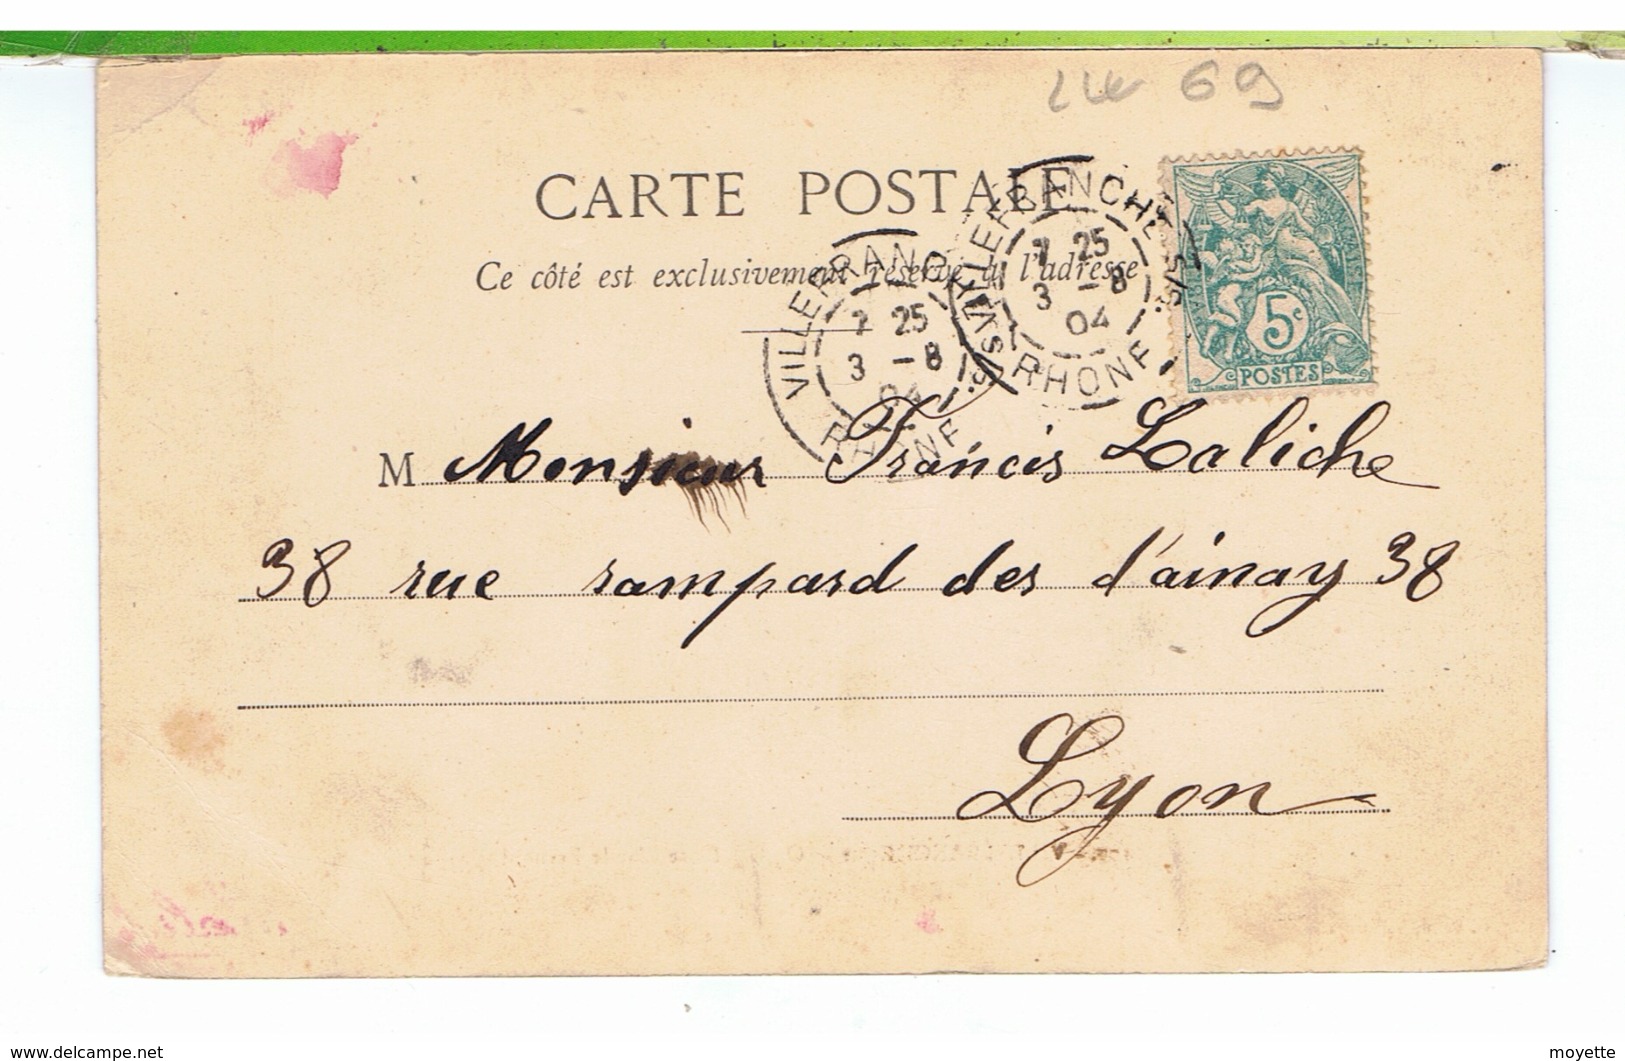 69
CARTE POSTALE
Ce côté est exclusivement réservé à l'adresse
VILLEFRANCHE S/S.
7 25
3 -8
04
RHONE
VILLEFRANCHE S/S.
7 25
3 -8
04
RHONE
5c
POSTES
M Monsieur Francis Laliche
38 rue rampard des d'ainay 38
Lyon
moyette
www.delcampe.net